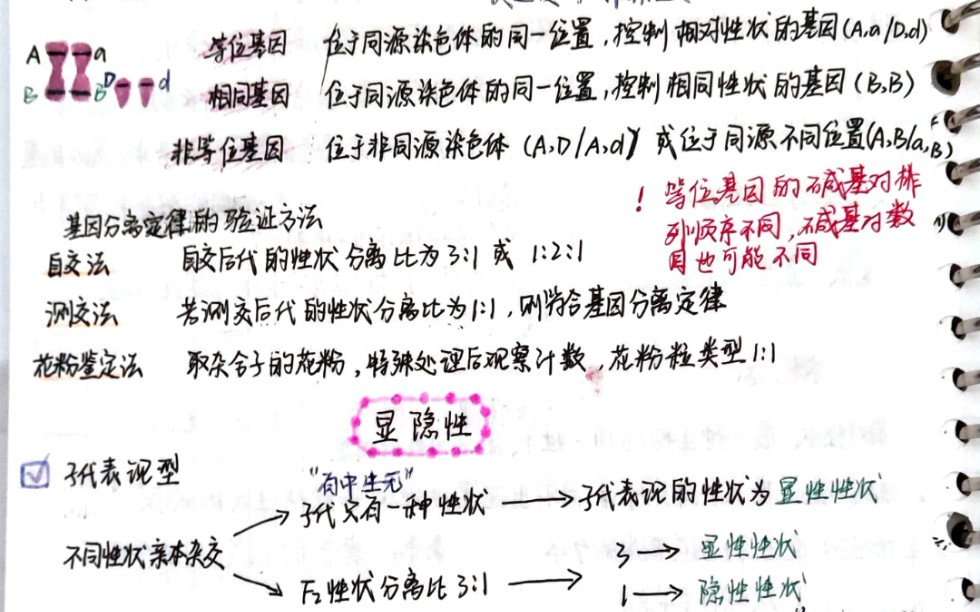 A a
B B D d
等位基因 位于同源染色体的同一位置，控制相对性状的基因(A,a/D,d)
相同基因 位于同源染色体的同一位置，控制相同性状的基因(B,B)
非等位基因 位于非同源染色体(A,D/A,d) 或位于同源不同位置(A,B/a,B)
！等位基因的碱基对排
列顺序不同，碱基对数
目也可能不同
基因分离定律的验证方法
自交法 自交后代的性状分离比为3:1或 1:2:1
测交法 若测交后代的性状分离比为1:1，则符合基因分离定律
花粉鉴定法 取杂合子的花粉，特殊处理后观察计数，花粉粒类型1:1
显隐性
子代表现型
"有中生无"
子代只有一种性状 → 子代表现的性状为显性性状
不同性状亲本杂交
F₂性状分离比3:1 → 3 → 显性性状
1 → 隐性性状